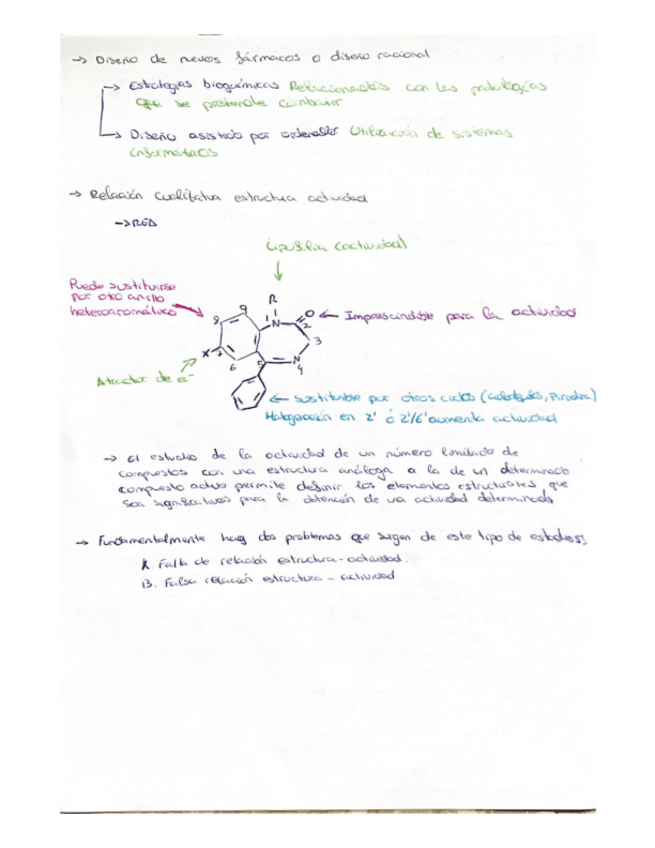 → Diseño de nuevos fármacos o diseño racional
→ Estrategias bioquímicas Relacionadas con las patologías
que se pretende combatir
→ Diseño asistido por ordenador Utilización de sistemas
informáticos
→ Relación cualitativa estructura actividad
→
Lipofilia (actividad)
Puede sustituirse
por otro anillo
heteroaromático
R
9
8
1
N
O
2
← Imprescindible para la actividad
3
X
7
6
5
N
4
Atractor de e-
← sustituible por otros ciclos (, Piridina)
Halogenación en 2' ó 2'/6' aumenta actividad
→ El estudio de la actividad de un número limitado de
compuestos con una estructura análoga a la de un determinado
compuesto activo permite definir los elementos estructurales que
son significativos para la obtención de una actividad determinada
→ Fundamentalmente hay dos problemas que surgen de este tipo de estudios:
A. Falta de relación estructura-actividad.
B. Falsa relación estructura - actividad